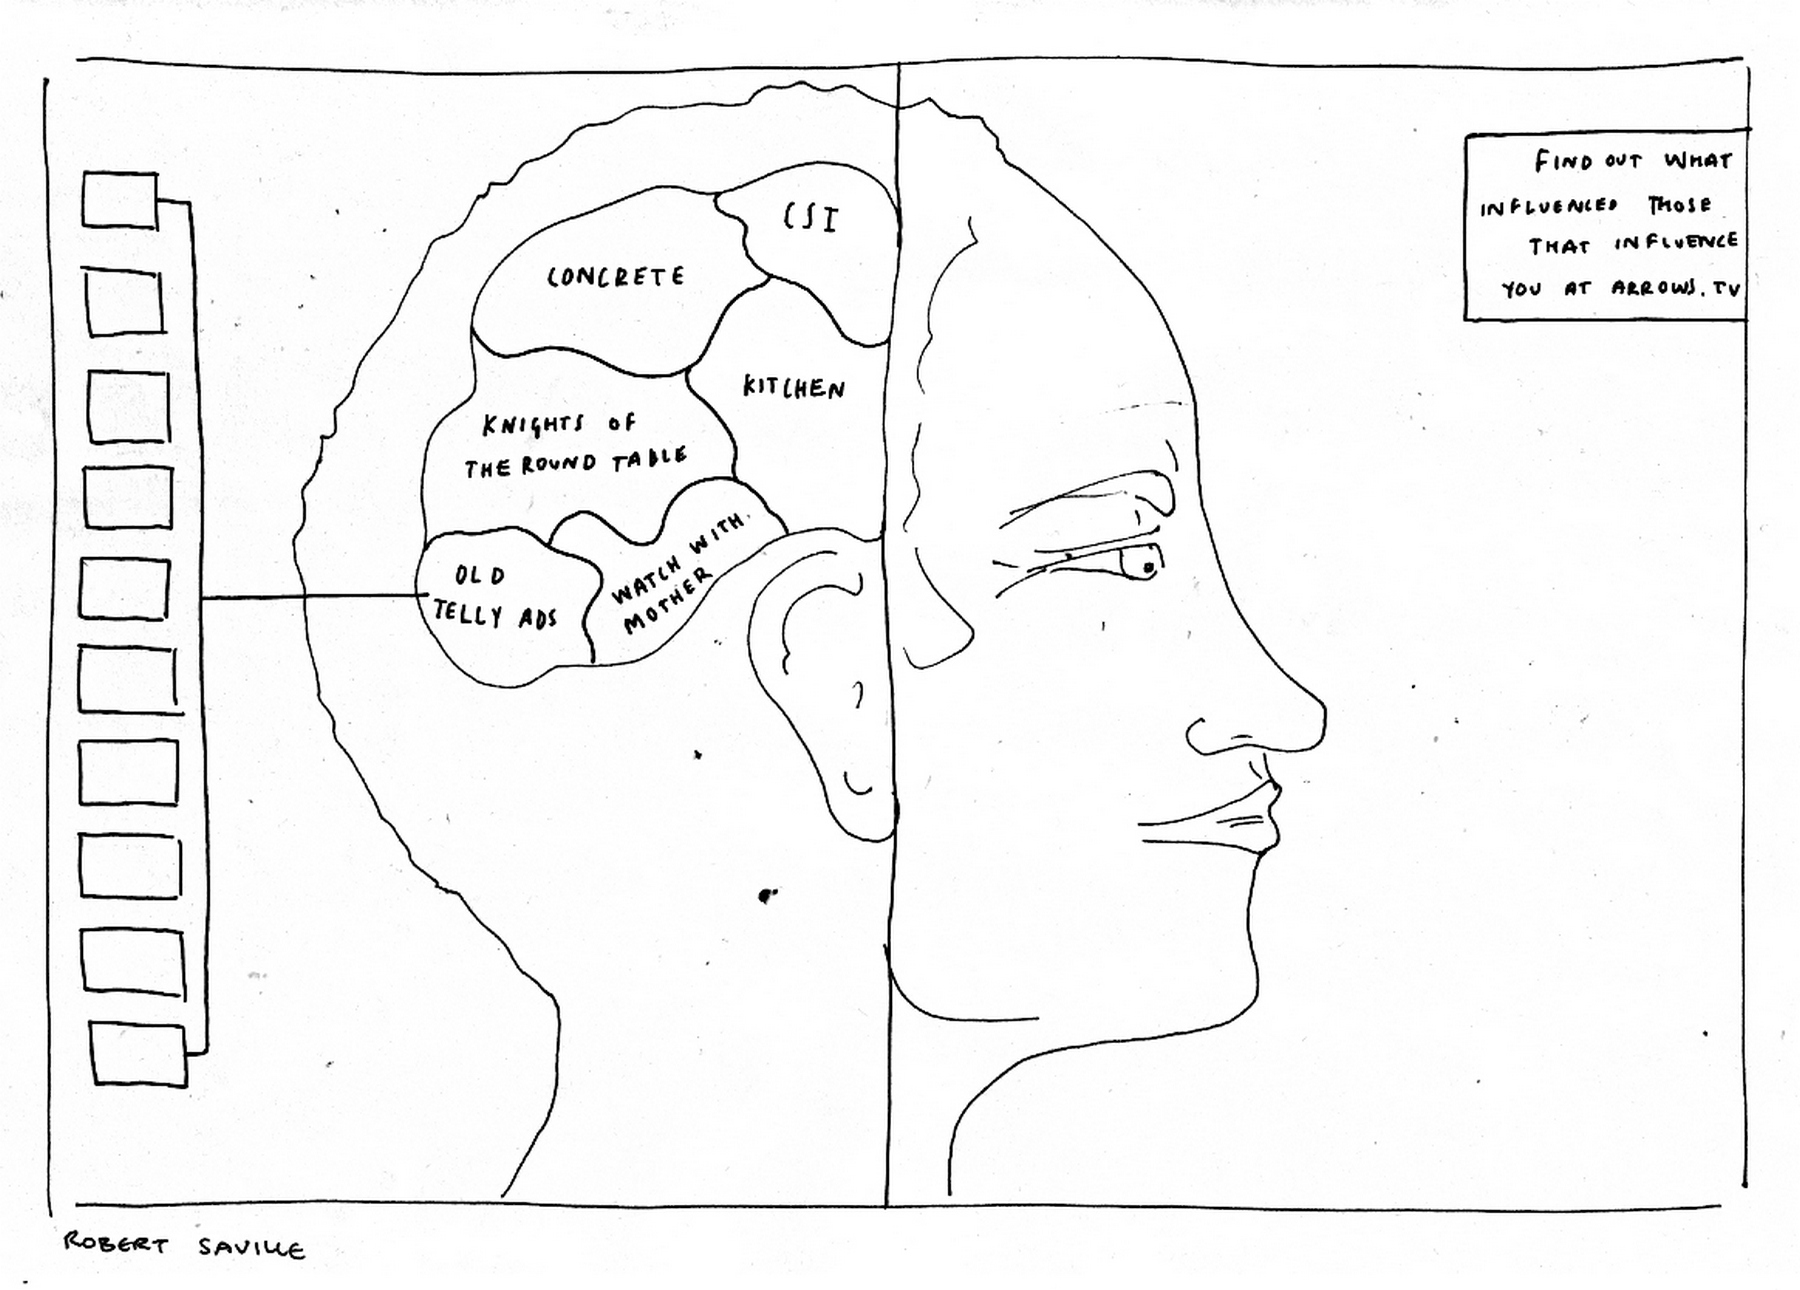 CSI
CONCRETE
KITCHEN
KNIGHTS OF
THE ROUND TABLE
OLD
TELLY ADS
WATCH WITH.
MOTHER
FIND OUT WHAT
INFLUENCED THOSE
THAT INFLUENCE
YOU AT ARROWS.TV
ROBERT SAVILLE